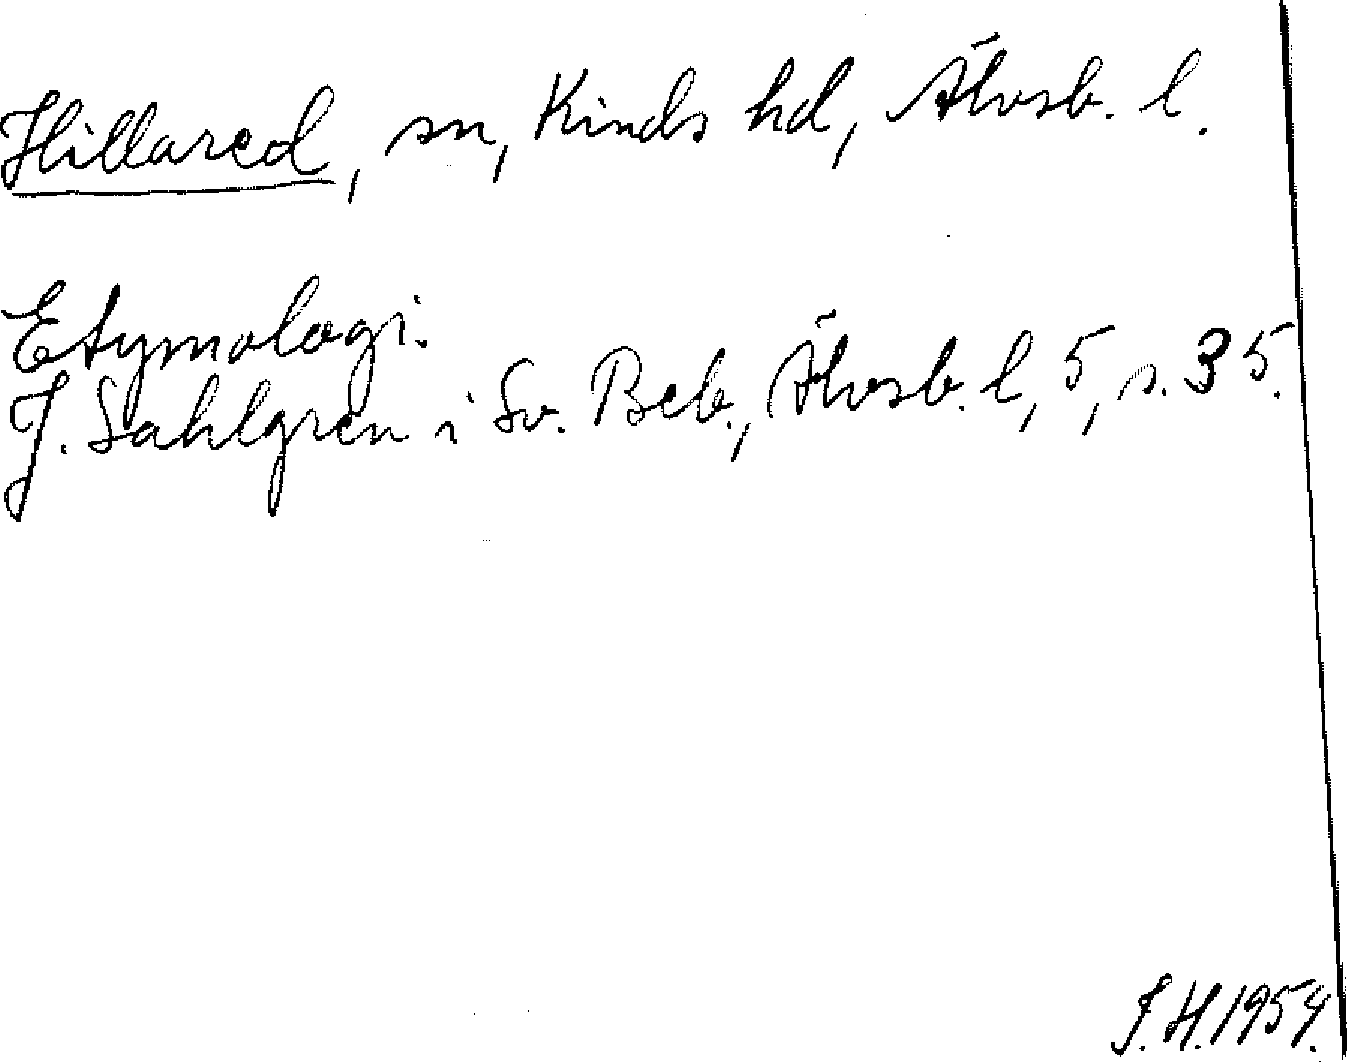 Hillared, sn, Kinds hd, Älvsb. l.
Etymologi.
J. Sahlgren i Sv. Beb., Älvsb. l, 5, s. 35.
J. H. 1954.